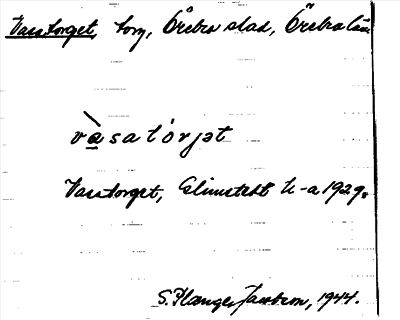 Vasatorget, torg, Örebro stad, Örebro län
vàsatórjət
Vasatorget, Glimstedt k-a 1929.
S. Planger Jacobson, 1944.